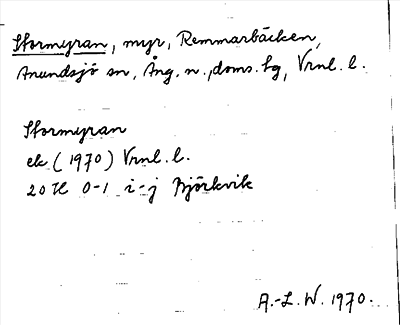 Stormyran, myr, Remmarbäcken,
Anundsjö sn, Ång. n., doms. tg, Vrnl. l.
Stormyran
ek (1970) Vrnl. l.
20H 0-1 i-j Björkvik
A.-L. W. 1970.